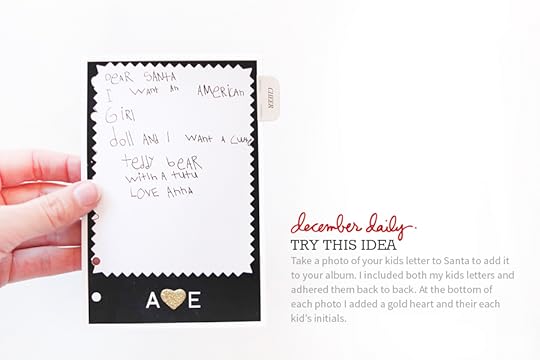 DEAR SANTA
I want an AMERICAN
GIRL
doll AND I want a
teddy bEAR
with a tutu
LOVE Anna
CHEER
A E
december daily.
TRY THIS IDEA
Take a photo of your kids letter to Santa to add it
to your album. I included both my kids letters and
adhered them back to back. At the bottom of
each photo I added a gold heart and their each
kid's initials.